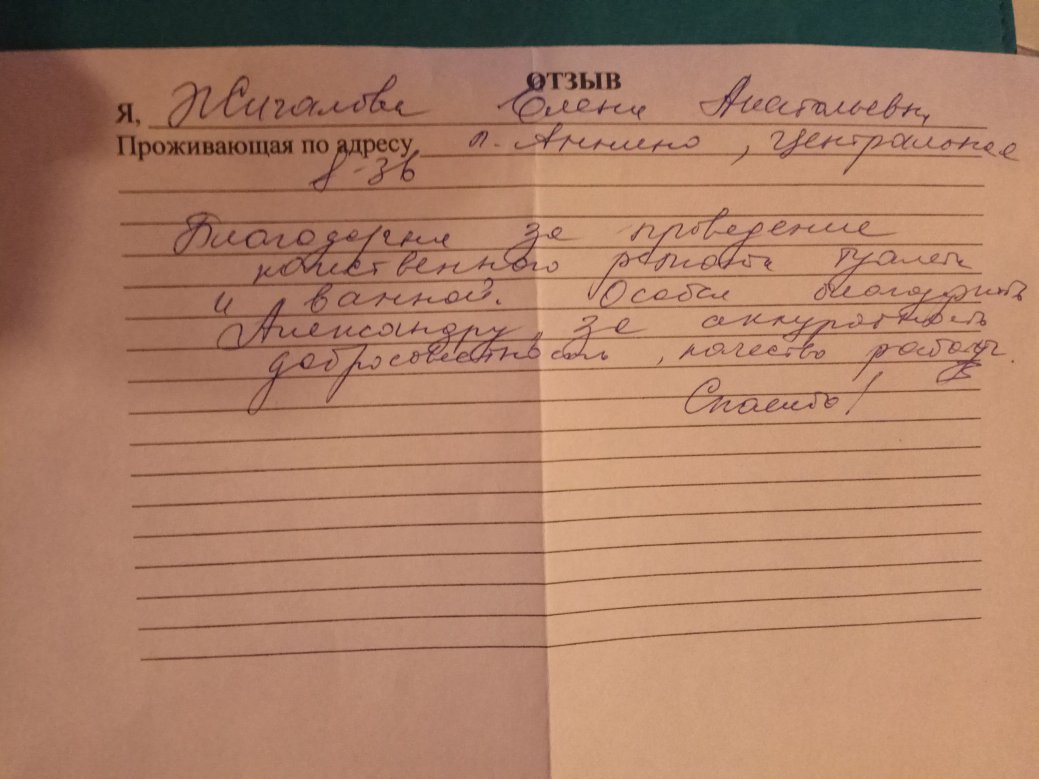 ОТЗЫВ
Я, Жигалова Елена Анатольевна
Проживающая по адресу п. Аннино, Центральная
8-36
Благодарна за проведение
качественного ремонта туалета
и ванной. Особая благодарность
Александру, за аккуратность
добросовестность, качество работы.
Спасибо!